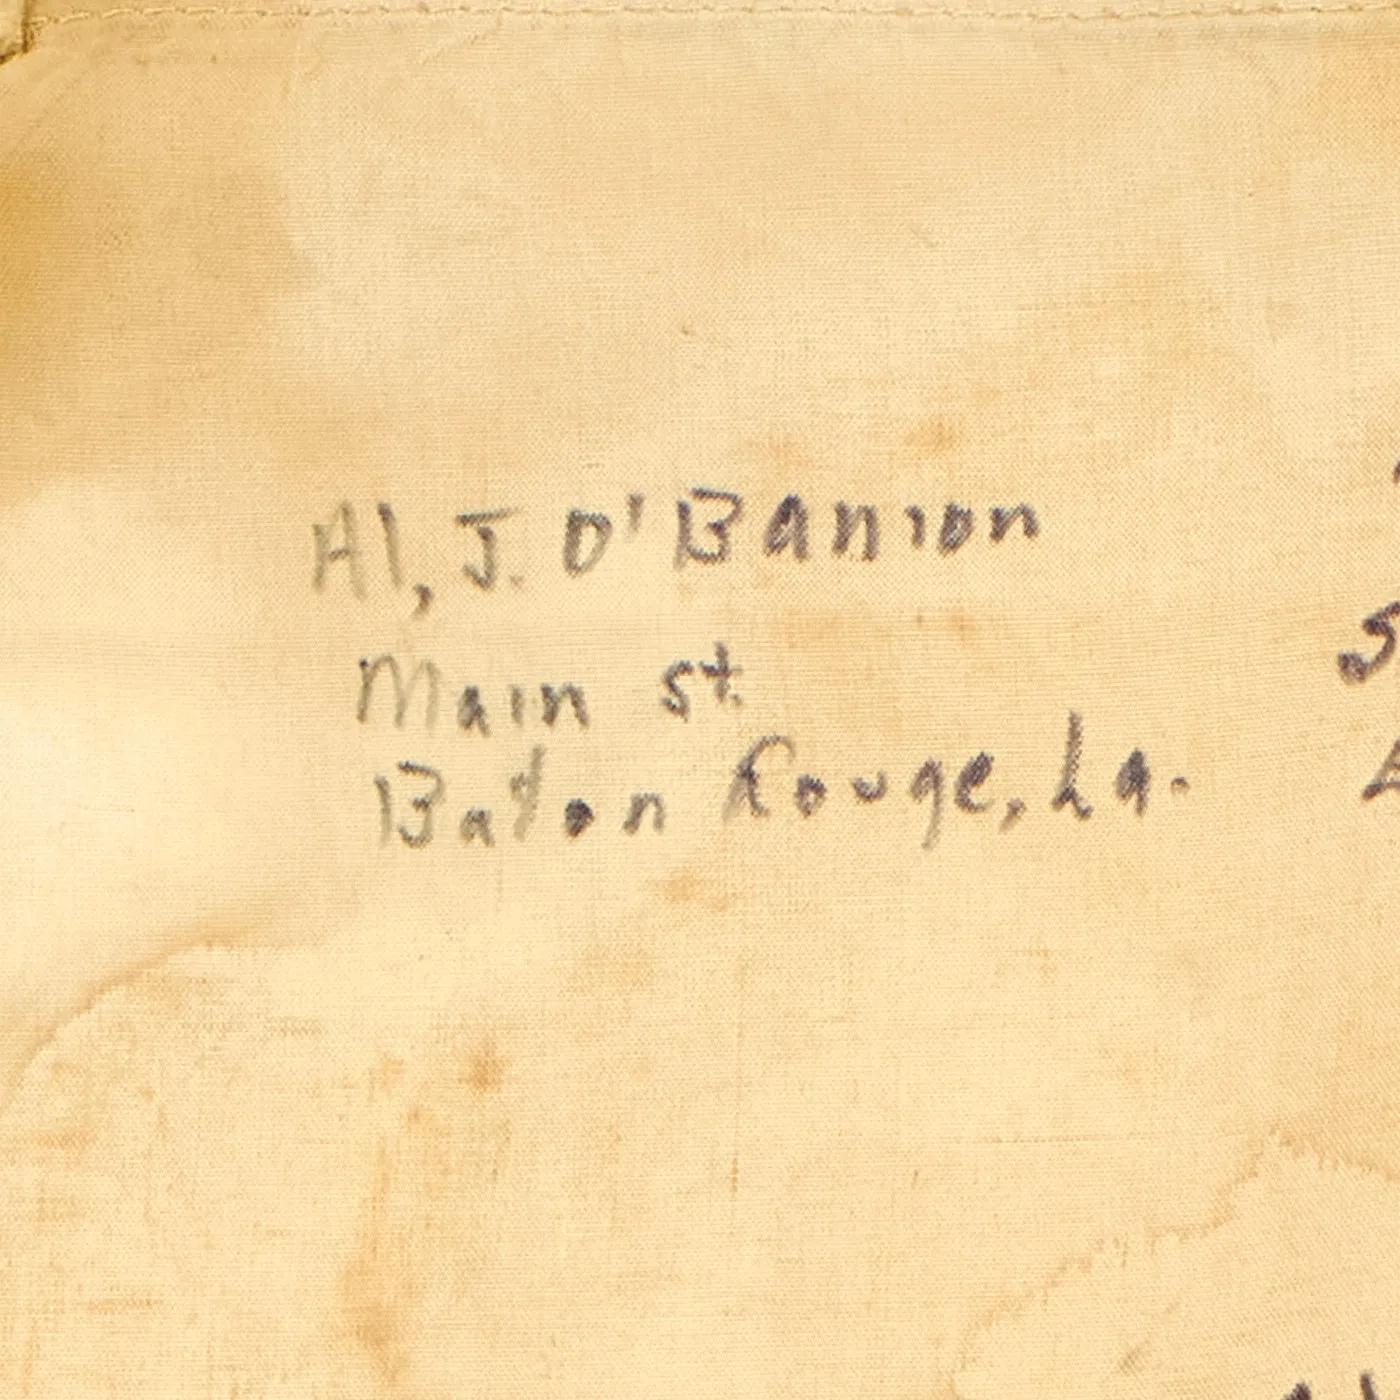 Al, J. O'Banion
Main St.
Baton Rouge, La.